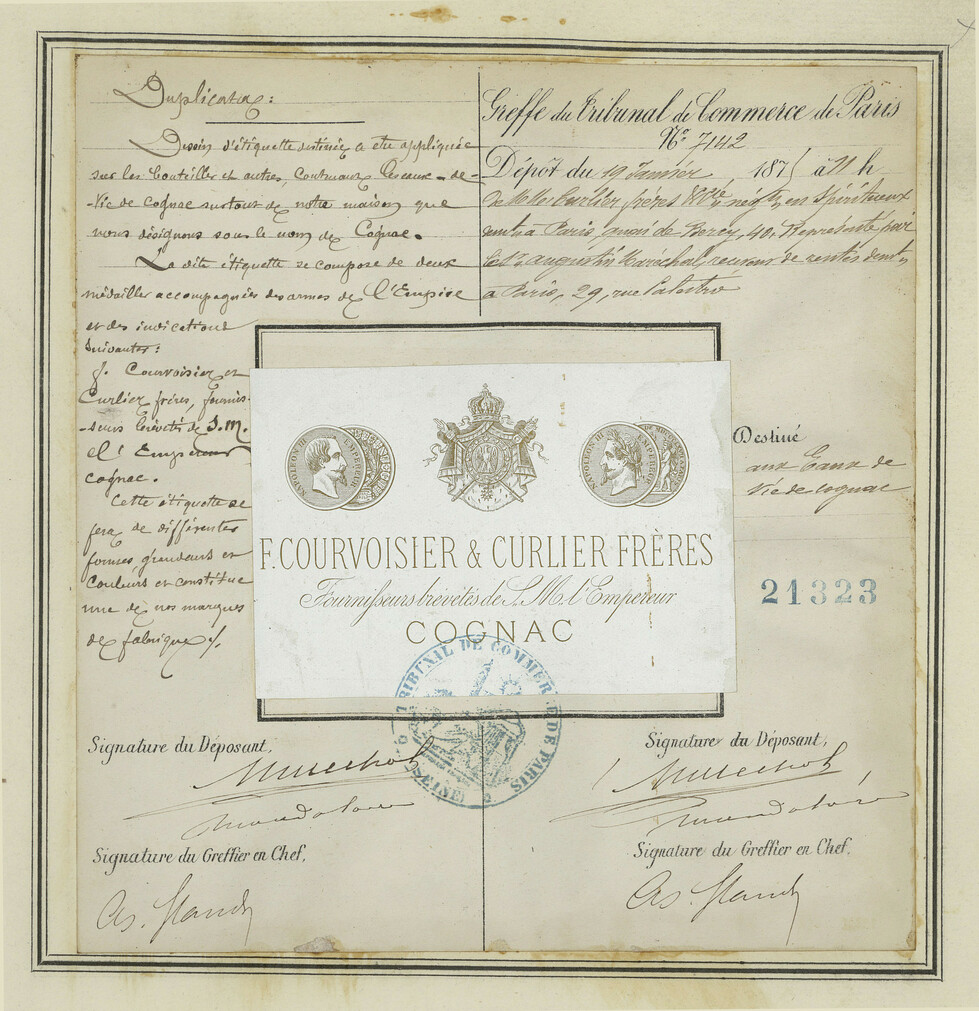 Duplicata:
Dessin d'étiquette destinée a etre appliquée
sur les bouteilles et autres, contenant les eaux-de-
-vie de cognac surtout de notre maison que
nous désignons sous le nom de Cognac.
La dite étiquette se compose de deux
médailles accompagnées des armes de l'Empire
et des indications
suivantes:
F. Courvoisier et
Curlier frères, fournis-
-seurs brévetés de S. M.
l'Empereur
cognac.
Cette étiquette se
fera de différentes
formes grandeurs et
couleurs et constitue
une de nos marques
de fabrique
Greffe du Tribunal de Commerce de Paris
No 7142
Dépôt du 19 Janvier 187 à 11 h
de MM. Curlier frères négts en Spiritueux
à Paris, quai de Bercy, 40. Représenté par
le Sr. augustin Maréchal, receveur de rentes demt
a Paris, 29, rue
NAPOLEON III EMPEREUR
NAPOLEON III EMPEREUR
F. COURVOISIER & CURLIER FRÈRES
Fournisseurs brévetés de S. M. l'Empereur
COGNAC
Destiné
aux Eaux de
Vie de cognac
21323
TRIBUNAL DE COMMERCE DE PARIS
(SEINE)
Signature du Déposant,
Marechal
mandataire
Signature du Greffier en Chef,
Signature du Déposant,
Marechal
mandataire
Signature du Greffier en Chef,